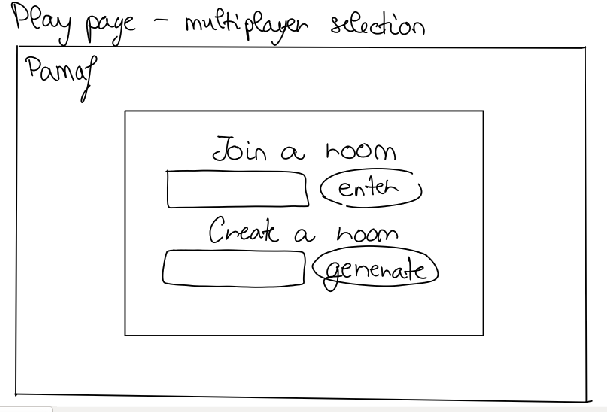 Play page - multiplayer selection
Pamaf
Join a room
enter
Create a room
generate